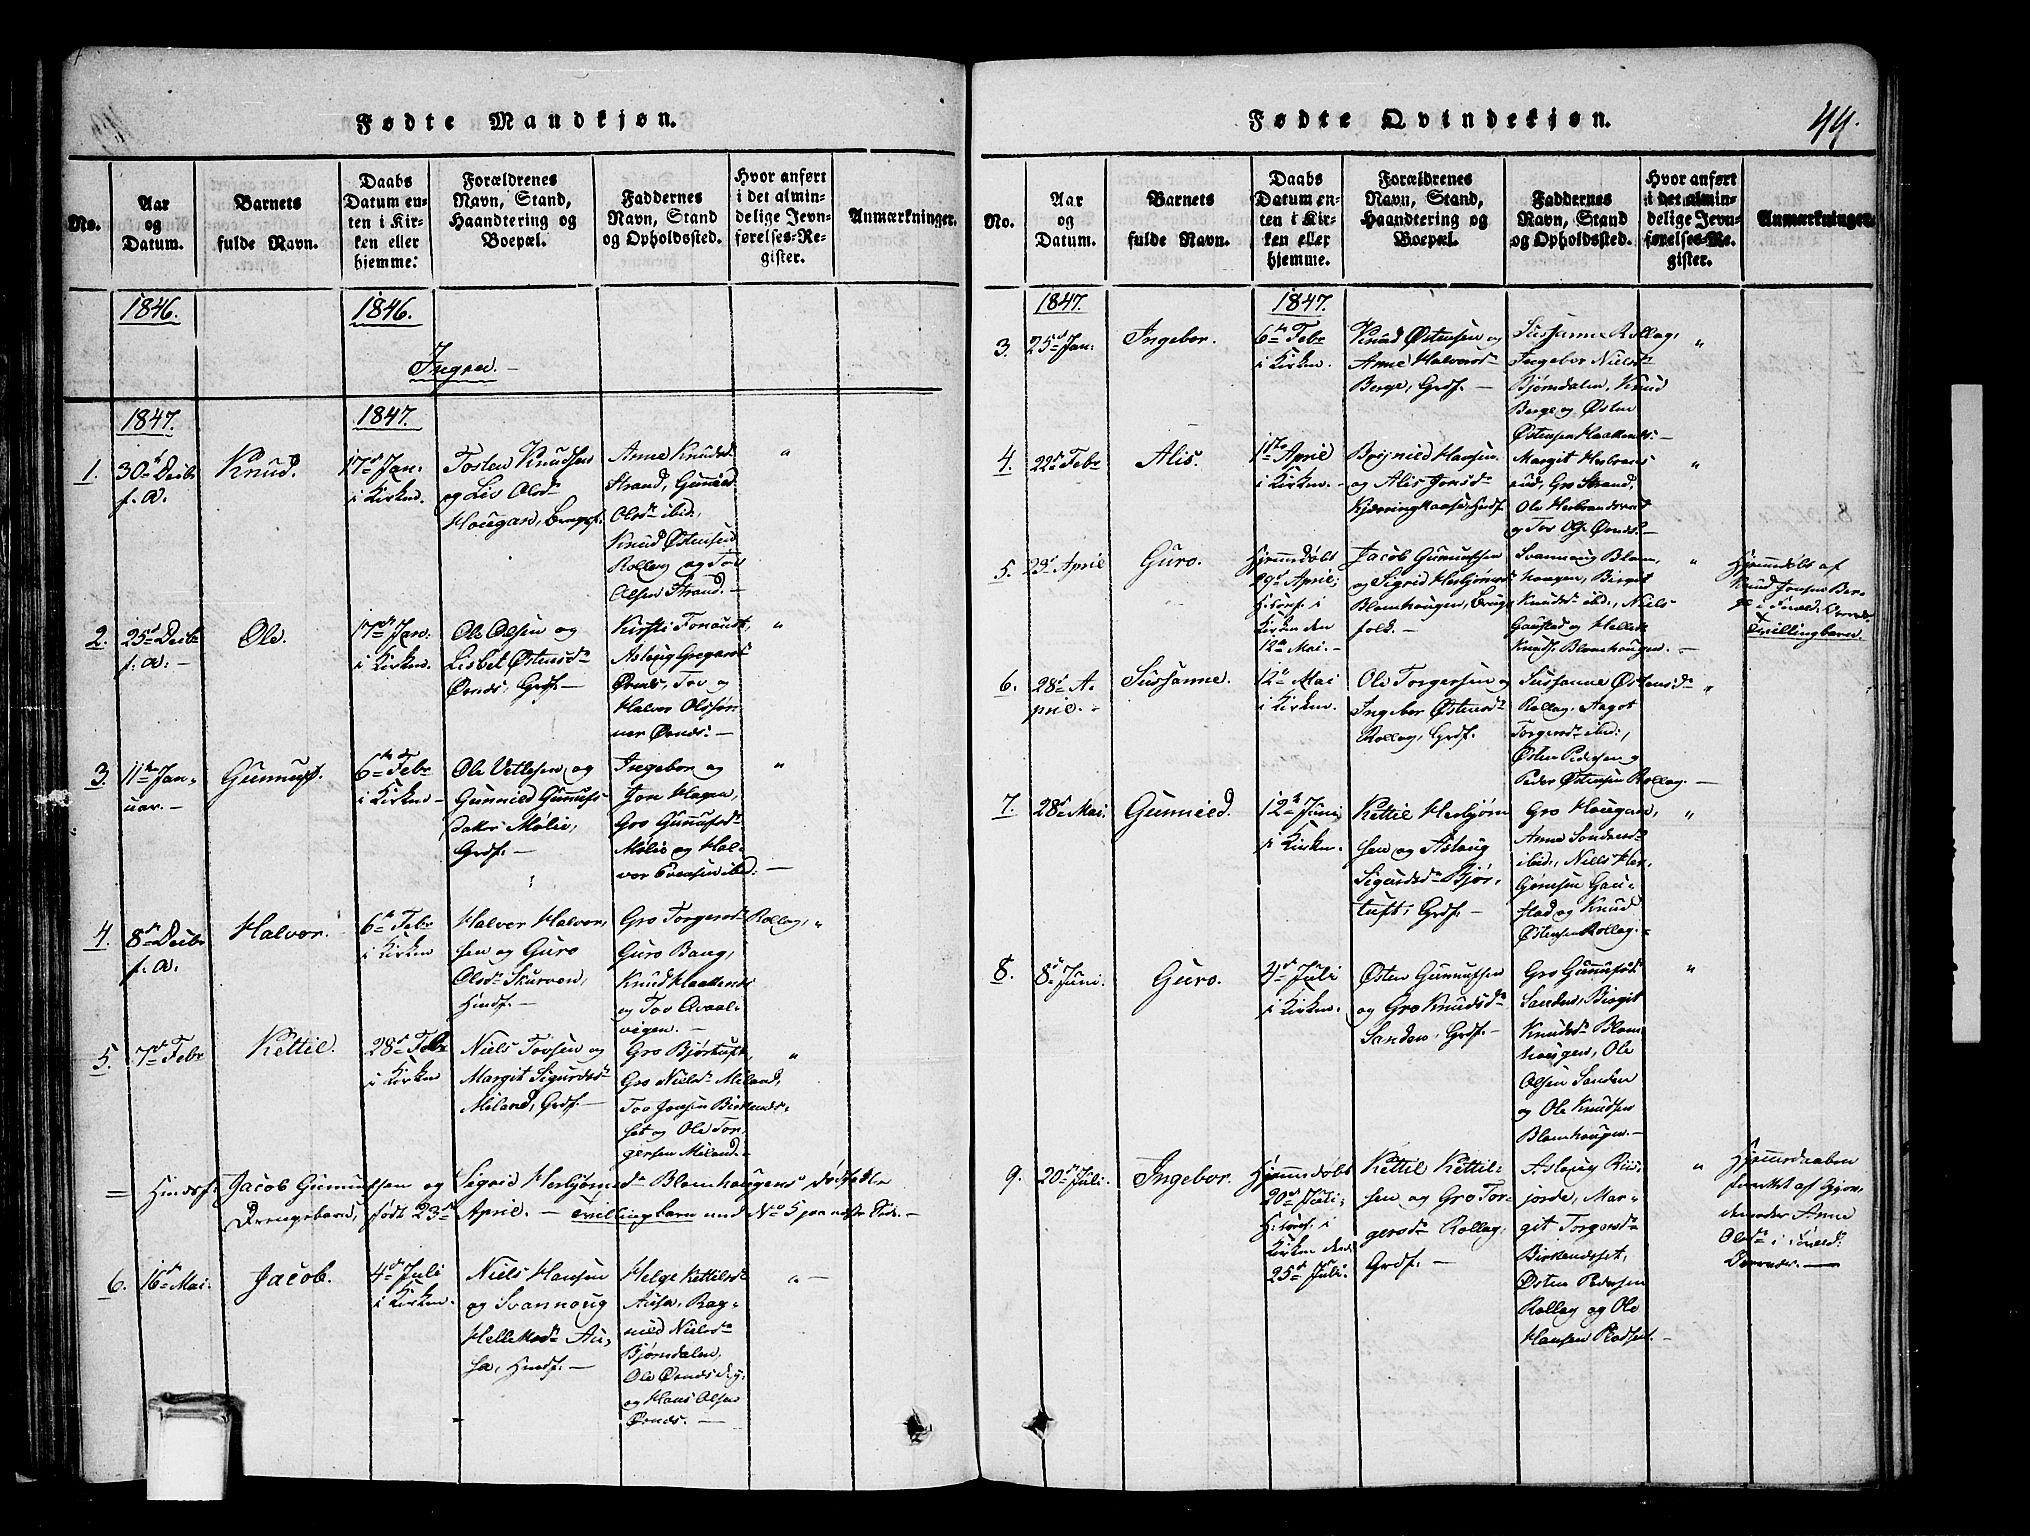 Fødte Mandkjøn.
No.
Aar
og
Datum.
Barnets
fulde Navn.
Daabs
Datum en-
ten i Kir-
ken eller
hjemme.
Forældrenes
Navn, Stand,
Haandtering og
Boepæl.
Faddernes
Navn, Stand
og Opholdssted.
Hvor anført
i det almin-
delige Jevn-
førelses-Re-
gister.
Anmærkninger.
1846.
1846.
Ingen.
1847.
1847.
1.
30te Decbr
f. A.
Knud.
17de Jan.
i Kirken.
Tosten Knudsen
og Liv Olsd.
Hougan, Brugsf.
Anne Knudsd.
Strand, Gunnild
Olsd. ibid.,
Knud Østensen
Rollag og Tov
Olsen Strand. —
"
2.
25de Decbr
f. A. —
Ole.
17de Jan.
i Kirken.
Ole Olsen og
Lisbet Østensd.
Ørnes, Grdf. —
Kirsti
Aslaug Gregarsd.
Ørnes, Tov og
Halvor Olssøn-
ner Ørnes: —
"
3.
11te Jan-
uar. —
Gunnuf.
6te Febr
i Kirken —
Ole Vetlesen og
Gunnild Gunnufs-
datter Mølie,
Grdf. —
Ingebor og
Jon Hagen,
Gro Gunnufsd.
Mølie og Hal-
vor Evensen ibid: —
"
4.
8de Decbr
f. A.
Halvor.
6te Febr
i Kirken
Halvor Halvor-
sen og Guro
Olsd. Skurven,
Huusf. —
Gro Torgersd. Rollag,
Guro Baug,
Knud Haakenes
og Tov Qvaal-
vigen. —
"
5.
7de Febr
Kettil.
28de Febr
i Kirken
Niels Tovsen og
Margit Sigurdsd.
Miland, Grdf. —
Gro Bjørtuft,
Gro Nielsd. Miland,
Tov Jonsen Birkends-
set og Ole Tor-
gersen Miland. —
"
=
Huusf. Jacob Gunnufsen og Sigrid Herbjørnsd. Blomhougens dødfødte
Drengebarn, født 23de April. — Tvillingbarn med No 5 paa næste Side. —
6.
16de Mai.
Jacob.
4de Juli
i Kirken.
Niels Hansen
og Svannoug
Helleksd. Au-
sa, Huusf. —
Helge Kettilsd.
Ausa, Rag-
nild Nielsd.
Bjørndalen,
Ole Ørnes
og Hans Olsen
Ørnes. —
" —
Fødte Qvindekjøn.
44.
No.
Aar
og
Datum.
Barnets
fulde Navn.
Daabs
Datum en-
ten i Kir-
ken eller
hjemme.
Forældrenes
Navn, Stand,
Haandtering og
Boepæl.
Faddernes
Navn, Stand
og Opholdssted.
Hvor anført
i det almin-
delige Jevn-
førelses-Re-
gister.
Anmærkninger.
1847.
1847.
3.
25de Jan.
Ingebor.
6te Febr
i Kirken.
Knud Østensen og
Anne Halvorsd.
Berge, Grdf. —
Sussanne Rollag,
Ingebor Nielsd.
Bjørndalen, Knud
Berge og Østen
Østensen Haakenes: —
"
4.
22de Febr
Alis.
1ste April
i Kirken. —
Brynild Hansen
og Alis Jonsd.
Kjerringkaasa, Huusf.
Margit Herbrans-
rud, Gro Strand,
Ole Herbrandsrud
og Tov Ols. Ørnes. —
"
5.
23de April
Guro.
Hjemmedøbt
29de April;
H. Conf. i
Kirken den
12te Mai. —
Jacob Gunnufsen
og Sigrid Herbjørnsd.
Blomhougen, Brugs-
folk. —
Svannoug Blom-
hougen, Birgit
Knudsd. ibid., Niels
Gaustad og Hellek
Knuds. Blomhougen. —
"
Hjemmedøbt af
Knud Jonsen Ber-
ge i
Tvillingbarn.
6.
28de A-
pril. -
Sussanne.
12te Mai
i Kirken.
Ole Torgersen og
Ingebor Østensd.
Rollag, Grdf.
Sussanne Østensd.
Rollag, Aagot
Torgersd. ibid.,
Østen Pedersen og
Peder Østensen Rollag. —
"
7.
28de Mai.
Gunnild.
12te Juni
i Kirken.
Kettil Herbjørn-
sen og Aslaug
Sigurdsd. Bjør-
tuft; Grdf. —
Gro Hougan,
Anne Sondresd.
ibid., Niels Her-
bjørnsen Gau-
stad og Knud
Østensen Rollag. —
"
8.
8de Juni.
Guro.
4de Juli
i Kirken.
Østen Gunnufsen
og Gro Knudsd.
Sanden, Grdf. —
Gro Gunnufsd.
Sanden, Birgit
Knudsd. Blom-
hougen, Ole
Olsen Sanden
og Ole Knudsen
Blomhougen. —
"
9.
20de Juli.
Ingebor.
Hjemmedøbt
20de Juli;
H. Conf. i
Kirken den
25de Juli.
Kettil Kettil-
sen og Gro Tor-
gersd. Rollag,
Grdf. —
Aslaug Rui-
jorde, Mar-
git Torgersd.
Birkendsset,
Østen Pedersen
Rollag og Ole
Hansen
"
Hjemmedaaben
forrettet af Gjor-
demoder Anne
Olsd. i